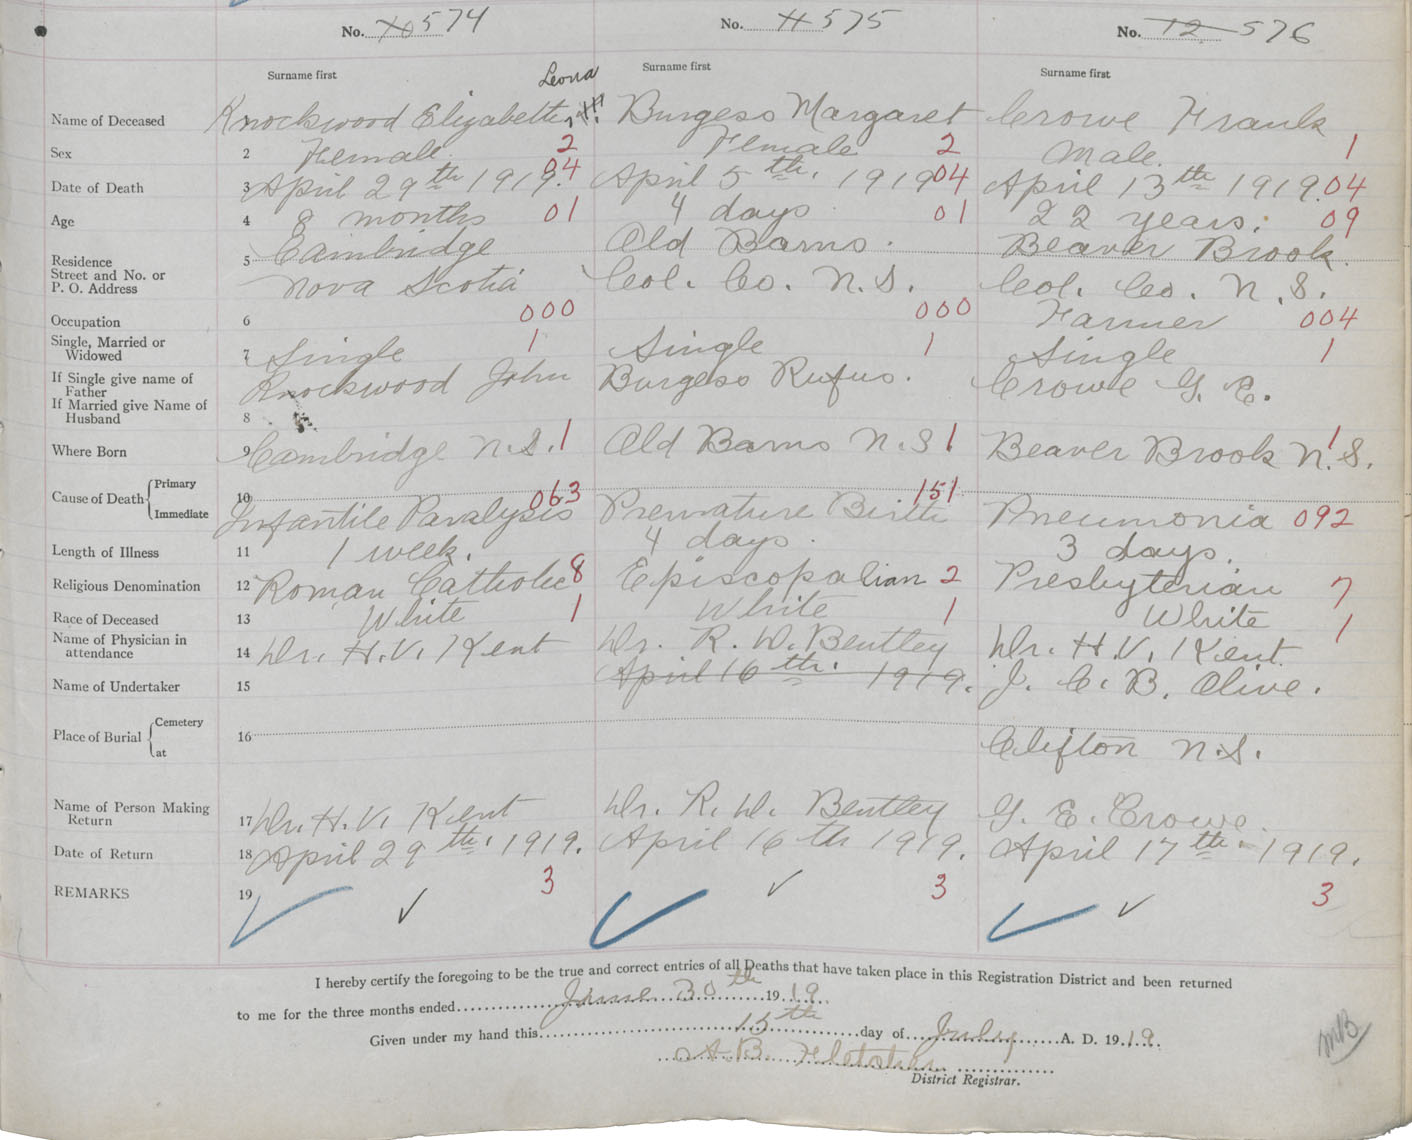 No. 10 574 No. 11 575 No. 12 576
Surname first Surname first Surname first
Leona
Name of Deceased Knockwood Elizabeth Burgess Margaret Crowe Frank
Sex 2 Female 2 Female 2 Male. 1
Date of Death 3 April 29th 1919. 04 April 5th. 1919 04 April 13th 1919. 04
Age 4 8 months 01 4 days 01 22 years. 09
Residence 5 Cambridge Old Barns. Beaver Brook.
Street and No. or
P. O. Address Nova Scotia Col. Co. N.S. Col. Co. N.S.
Occupation 6 000 000 Farmer 004
Single, Married or
Widowed 7 Single 1 Single 1 Single 1
If Single give name of
Father Knockwood John Burgess Rufus. Crowe G. E.
If Married give Name of
Husband 8
Where Born 9 Cambridge N.S. 1 Old Barns N.S 1 Beaver Brook N.S. 1
Cause of Death Primary 10 063 151
Immediate Infantile Paralysis Premature Birth Pneumonia 092
Length of Illness 11 1 week. 4 days. 3 days.
Religious Denomination 12 Roman Catholic 8 Episcopalian 2 Presbyterian 7
Race of Deceased 13 White 1 White 1 White 1
Name of Physician in
attendance 14 Dr. H.V. Kent Dr. R. W. Bentley Dr. H.V. Kent.
Name of Undertaker 15 April 16th. 1919. J. C. B. Olive.
Place of Burial Cemetery 16
at Clifton N.S.
Name of Person Making
Return 17 Dr. H. V. Kent Dr. R. W. Bentley G. E. Crowe.
Date of Return 18 April 29th. 1919. April 16th 1919. April 17th. 1919.
REMARKS 19 3 3 3
I hereby certify the foregoing to be the true and correct entries of all Deaths that have taken place in this Registration District and been returned
to me for the three months ended June 30th 1919.
Given under my hand this 15th day of July A. D. 1919.
A.B. Fletcher
District Registrar.
MB